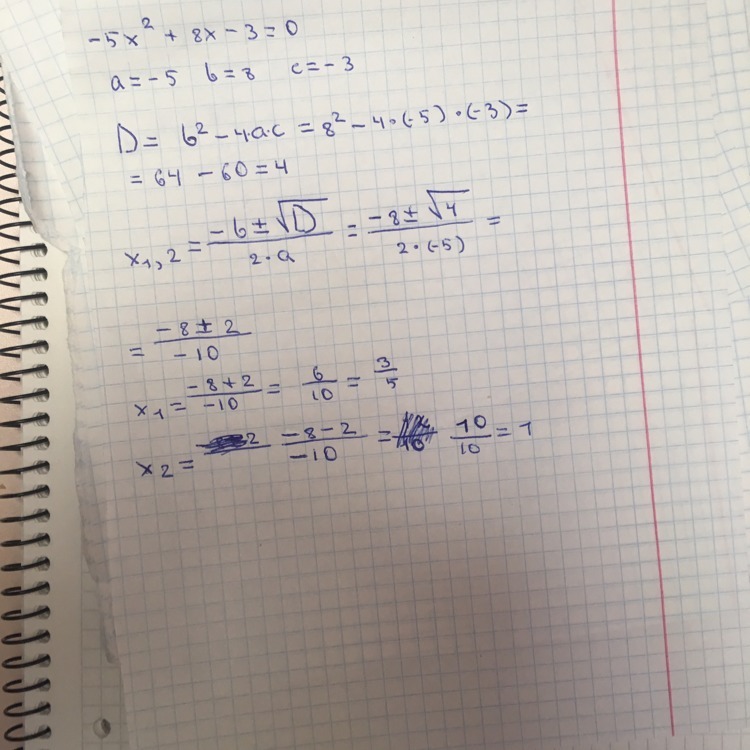 -5x² + 8x - 3 = 0
a = -5 b = 8 c = -3
D = b² - 4·a·c = 8² - 4·(-5)·(-3) =
= 64 - 60 = 4
x₁,₂ = (-b ± √D)/(2·a) = (-8 ± √4)/(2·(-5)) =
= (-8 ± 2)/(-10)
x₁ = (-8+2)/(-10) = 6/10 = 3/5
x₂ = (-8-2)/(-10) = 10/10 = 1